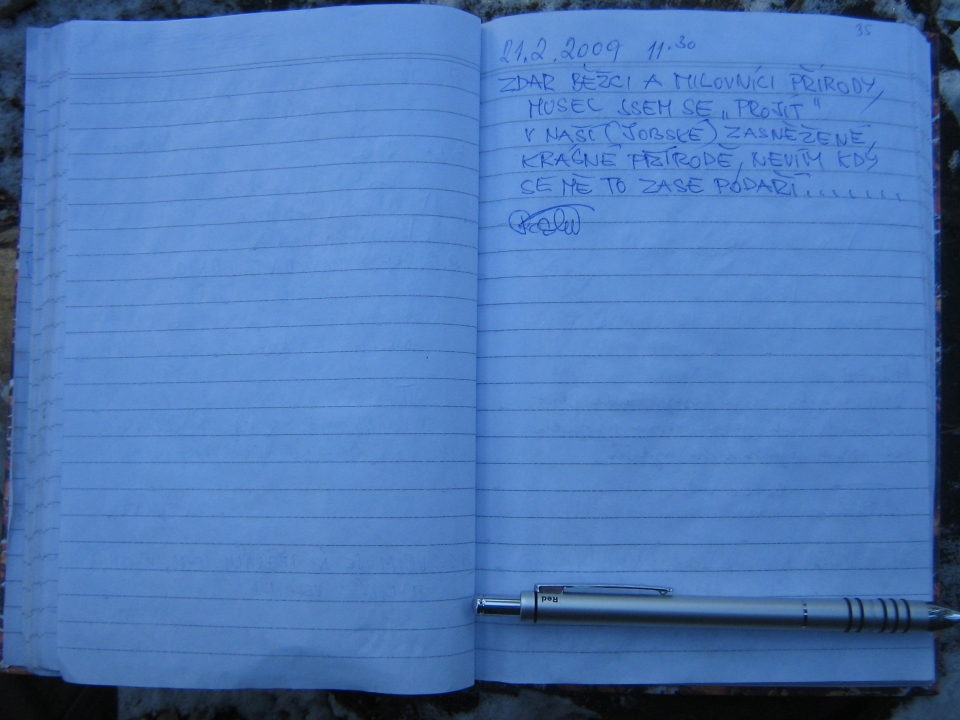 35
21.2.2009 11.30
ZDAR BĚŽCI A MILOVNÍCI PŘÍRODY,
MUSEL JSEM SE „PROJÍT"
V NAŠÍ (JOBSKÉ) ZASNĚŽENÉ,
KRÁSNÉ PŘÍRODĚ, NEVÍM KDY
SE MĚ TO ZASE PODAŘÍ........
Red